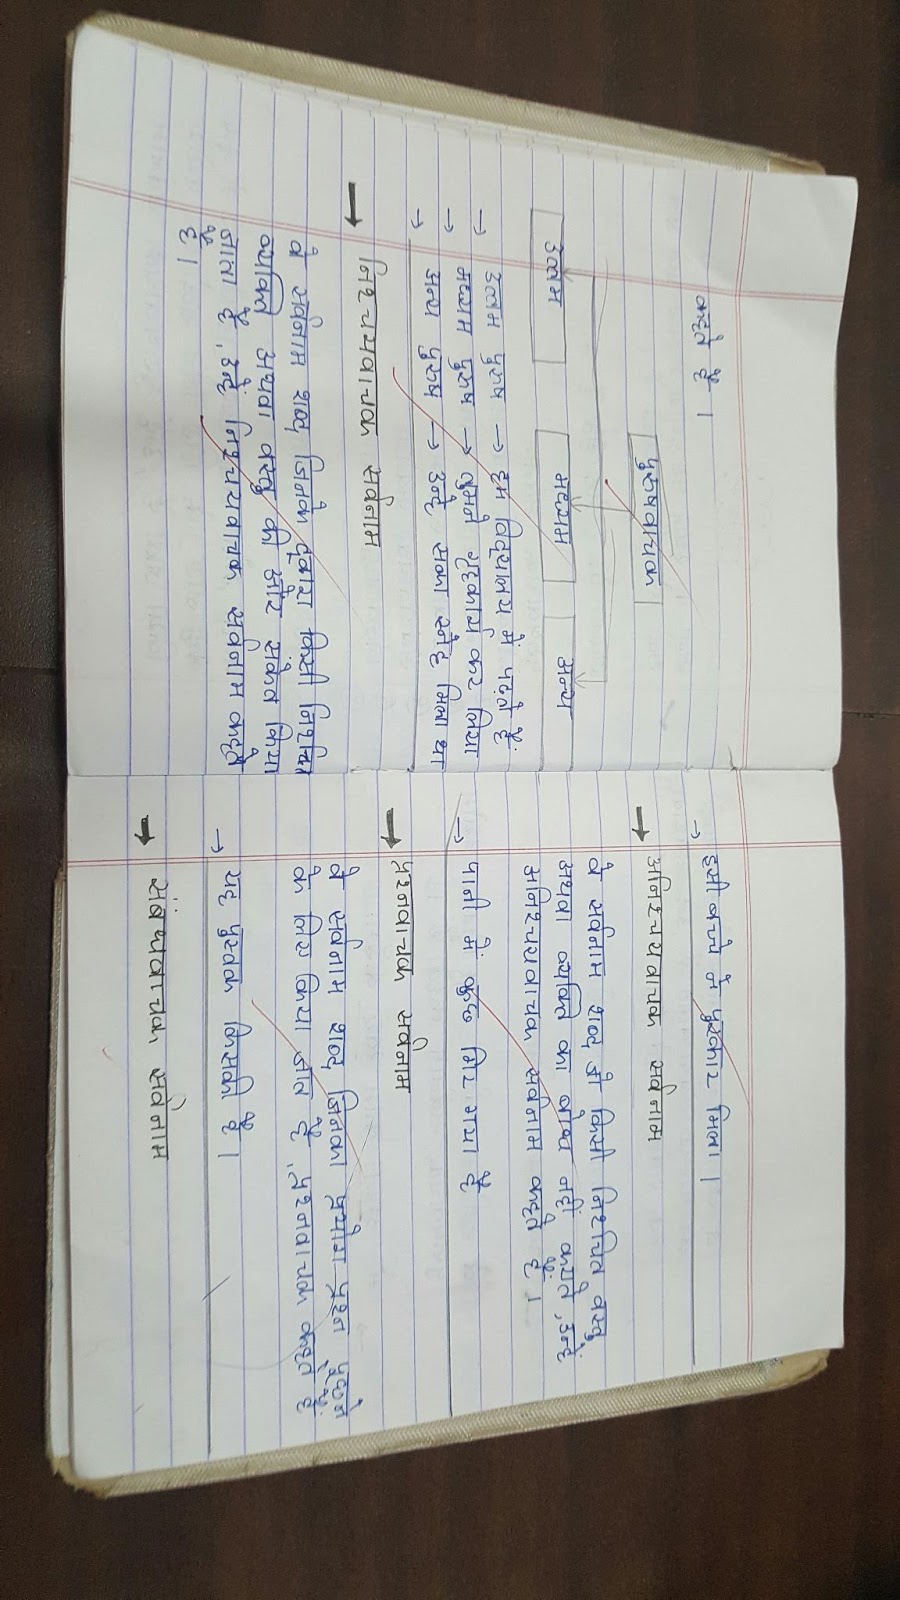 कहते हैं ।
पुरुषवाचक
उत्तम मध्यम अन्य
→ उत्तम पुरुष → हम विद्यालय में पढ़ते हैं
→ मध्यम पुरुष → तुमने गृहकार्य कर लिया
→ अन्य पुरुष → उन्हे सबका स्नेह मिला था
→ निश्चयवाचक सर्वनाम
वे सर्वनाम शब्द जिनके द्वारा किसी निश्चित
व्यक्ति अथवा वस्तु की ओर संकेत किया
जाता है, उन्हें निश्चयवाचक सर्वनाम कहते
हैं ।
→ इसी बच्चे को पुरस्कार मिला ।
→ अनिश्चयवाचक सर्वनाम
वे सर्वनाम शब्द जो किसी निश्चित वस्तु
अथवा व्यक्ति का बोध नहीं कराते, उन्हें
अनिश्चयवाचक सर्वनाम कहते हैं ।
→ पानी में कुछ गिर गया है
→ प्रश्नवाचक सर्वनाम
वे सर्वनाम शब्द जिनका प्रयोग प्रश्न पूछने
के लिए किया जाता है, प्रश्नवाचक कहते हैं
→ यह पुस्तक किसकी है ।
→ संबंधवाचक सर्वनाम